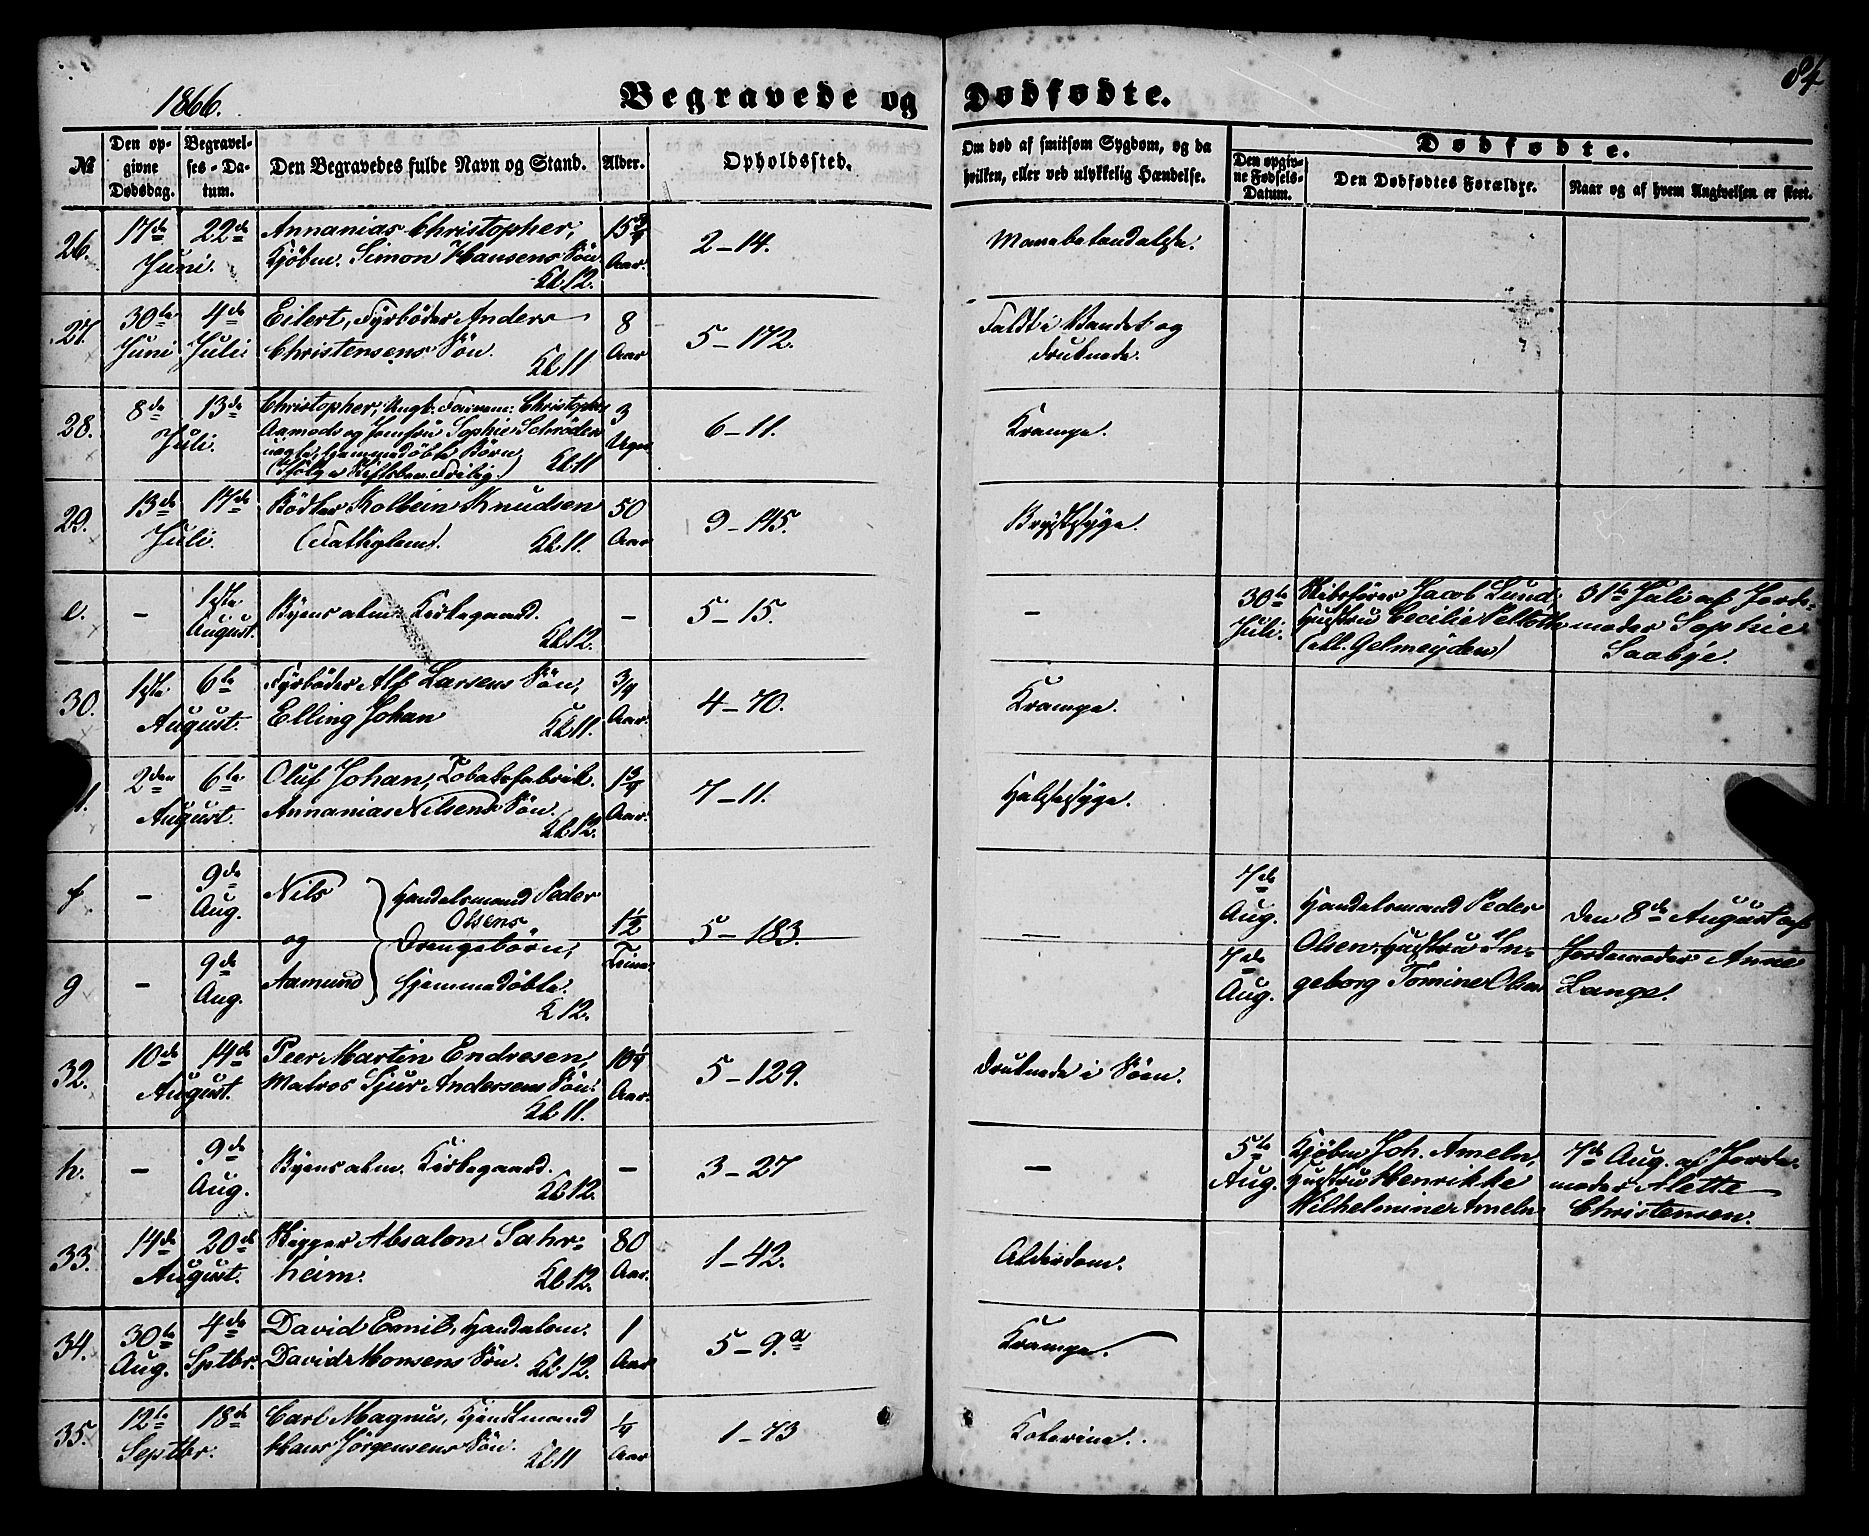 1866.
Begravede og Dødfødte.
84
№
Den opgivne Dødsdag.
Begravelses-Datum.
Den Begravedes fulde Navn og Stand.
Alder.
Opholdssted.
Om død af smitsom Sygdom, og da hvilken, eller ved ulykkelig Hændelse.
Dødfødte.
Den opgivne Fødsels-Datum.
Den Dødfødtes Forældre.
Naar og af hvem Angivelsen er skeet.
26. 17de 22de Annanias Christopher, 15 3/4
Juni. Kjøbm. Simon Hansens Søn. Aar. 2-14.
Kl. 12.
27. 30te 4de Eilert, Fyrbøder Anders 8 Faldt i Vandet og
Juni Juli Christensens Søn. Aar 5-172. druknede.
Kl. 11
28. 8de 13de Christopher, Christopher 3
Juli. Aamodt og Jomfru Sophie Schrøders Uger 6-11. Krampe.
uægte, hjemmedøbte Børn Kl. 11
29. 13de 17de Bødker Kolbein Knudsen 50
Juli. Kl. 11. Aar 9-145. Brystsyge.
e. - 1ste Byens alm. Kirkegaard. - 5-15. - 30te Jacob Lund, 31te Juli af Jorde-
August. Kl. 12. Juli. Hustru Cecilie moder Sophie
(All. Gelmeyden) Saabye.
30. 1ste 6te Fyrbøder Alf Larsens Søn, 3/4
August. Elling Johan Kl. 11. Aar. 4-70. Krampe.
2den 6te Oluf Johan, Tobaksfabrik. 1 3/4
August. Annanias Nilsens Søn. Aar. 7-11. Halssyge.
Kl. 12.
f - 9de Nils Handelsmand Peder 7de
Aug. Olsens 1½ Aug. Handelsmand Peder Den 8de August af
og Drengebørn, Time 5-183. - Olsen, Hustru In- Jordemoder Anne
g - 9de Aamund hjemmedøbte. 7de geborg Tomine Olsen Lange.
Aug. Kl 12. Aug.
32. 10de 14de Peer Martin Endresen, 10 1/4
August. Matros Sjur Andersens Søn. Aar. 5-129. druknede i Søen.
Kl. 11.
h. - 9de Byens alm. Kirkegaard. - 3-27 - 5te Kjøbm. Joh. Ameln, 7de Aug. af Jorde-
Aug. Kl. 12. Aug. Hustru Henrikke moder Alette
Wilhelmine Ameln. Christensen.
33. 14de 20de Skipper Absalon Sahr- 80
August. heim. Kl. 12. Aar. 1-42. Alderdom.
34. 30te 4de David Emil, Handelsm. 1
Aug. Sptbr. David Monsens Søn. Kl. 12. Aar 5-9.a Krampe.
35. 12te 18de Carl Magnus, 1/4
Septbr. Hans Jørgensens Søn. Kl. 11 Aar 1-73 Kolerine.